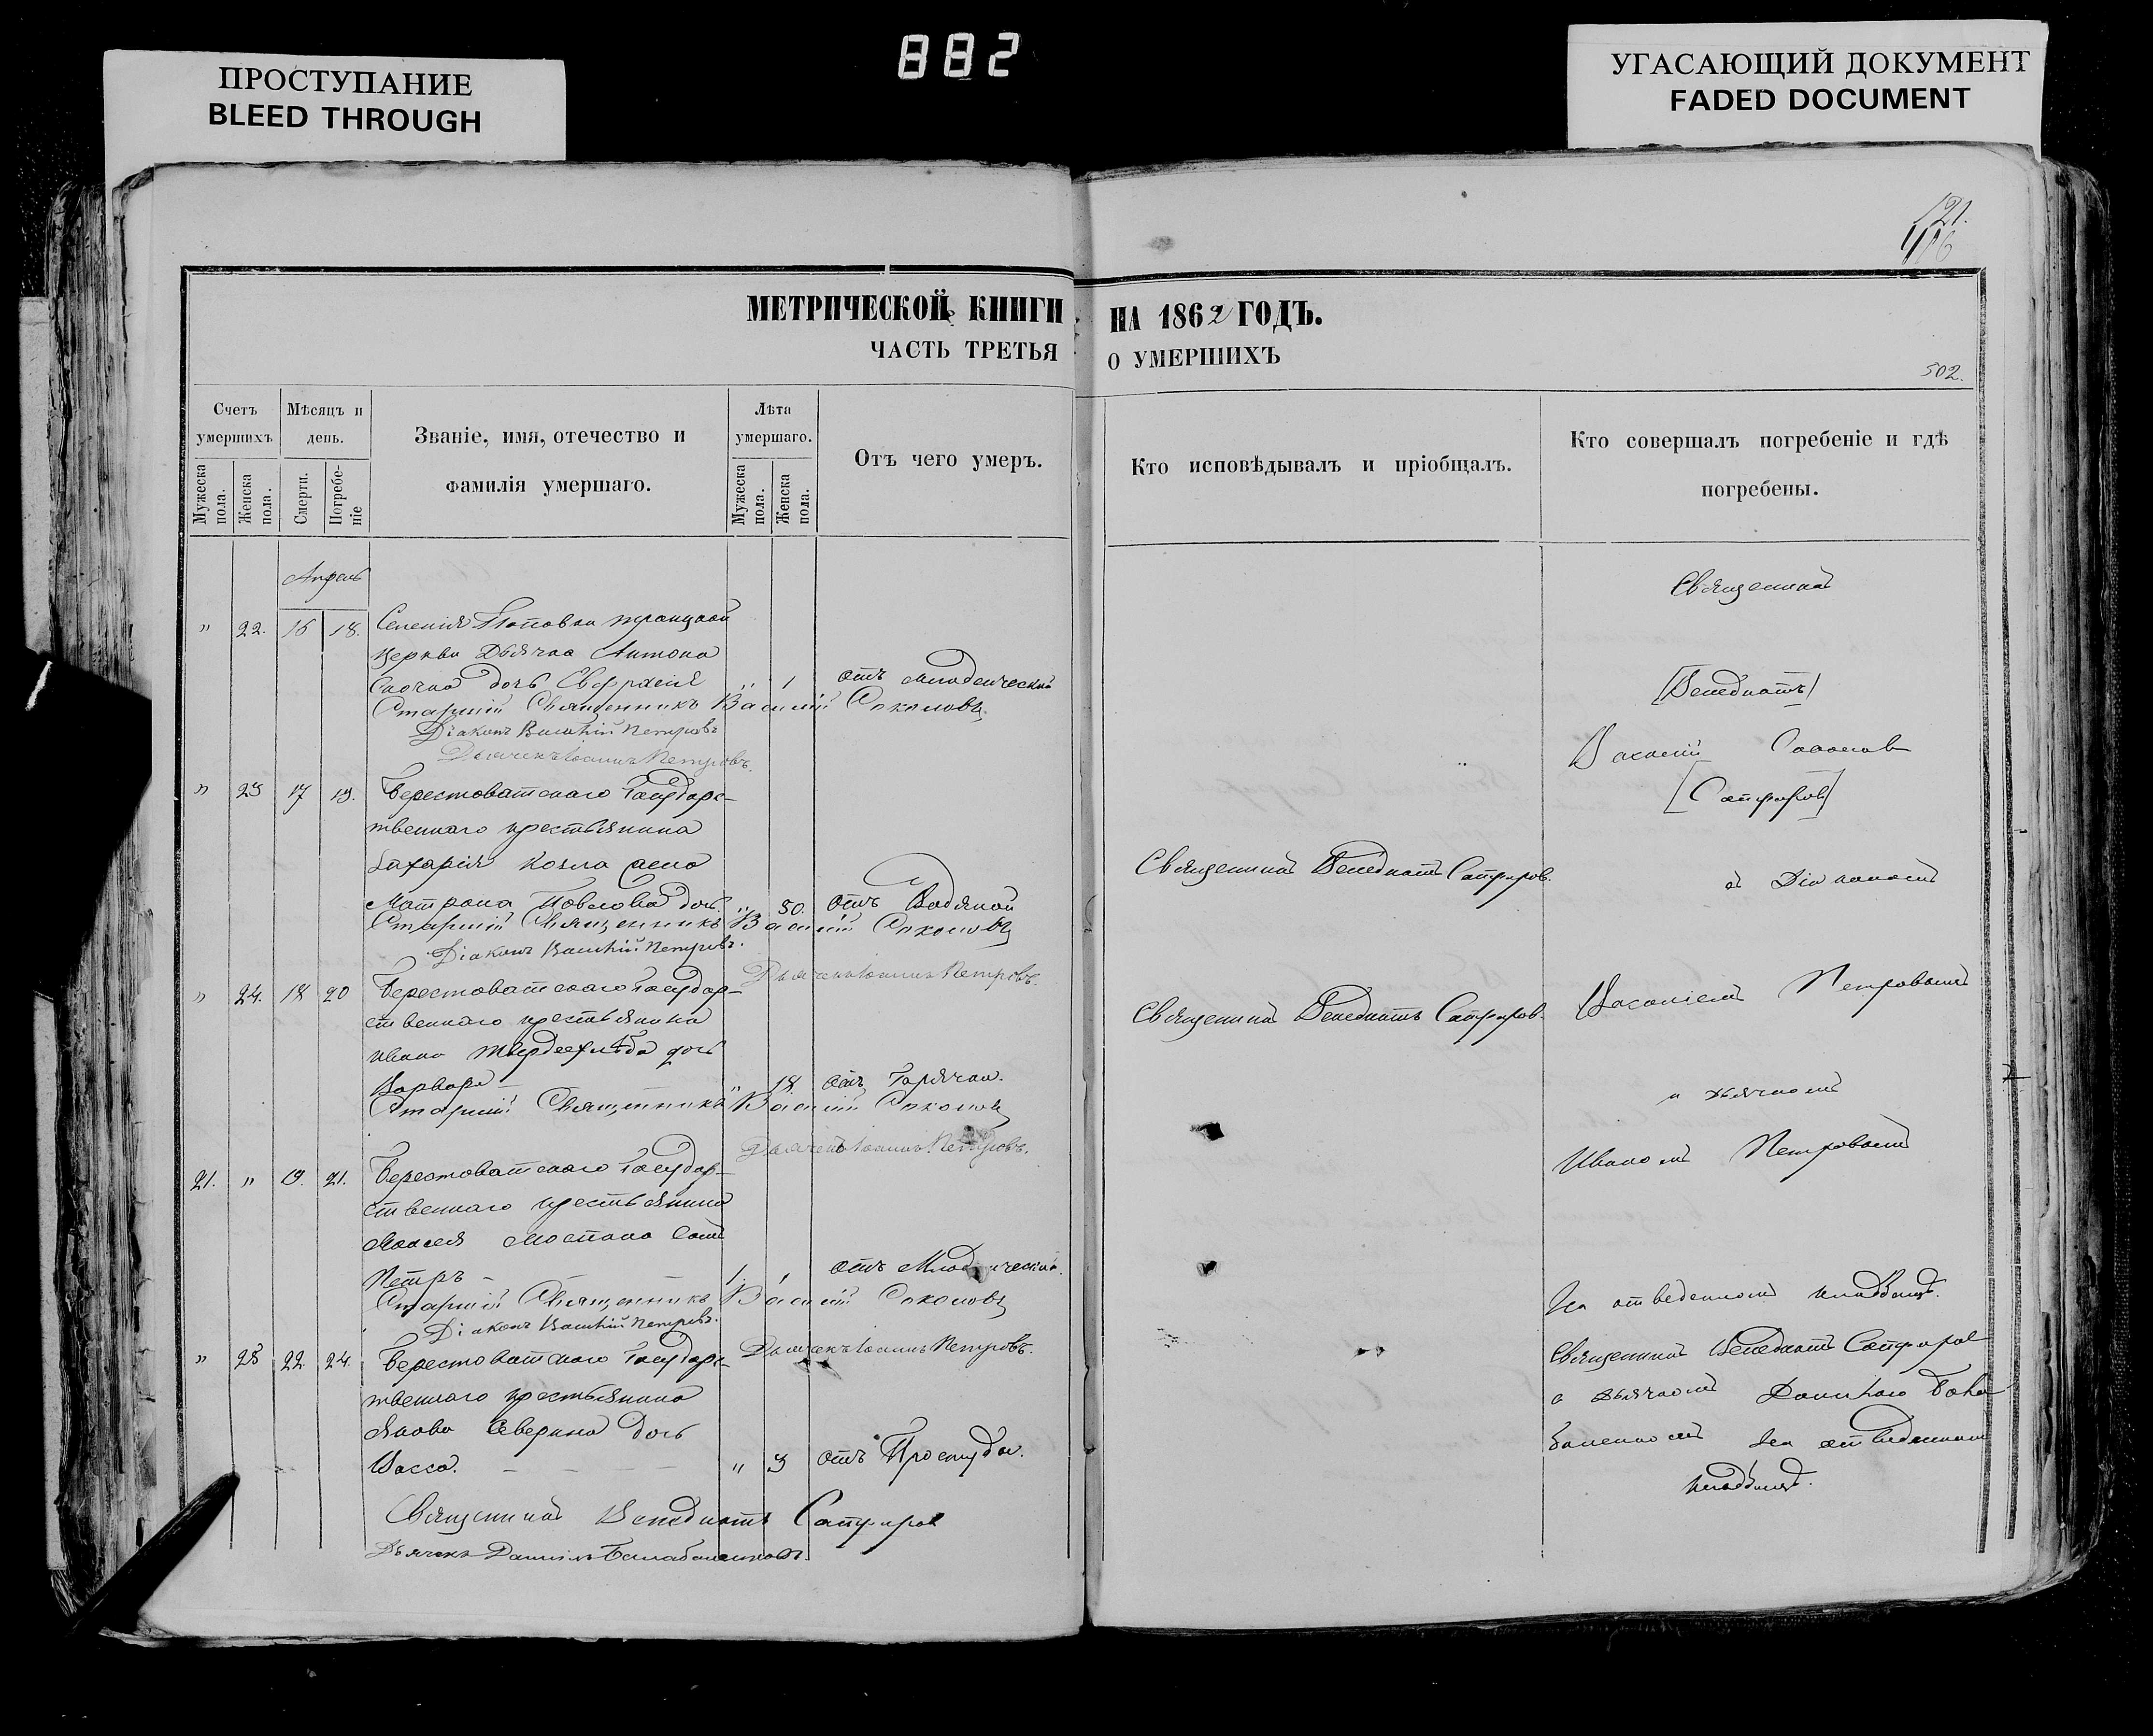 882
ПРОСТУПАНИЕ
BLEED THROUGH
УГАСАЮЩИЙ ДОКУМЕНТ
FADED DOCUMENT
121.
116
МЕТРИЧЕСКОЙ КНИГИ НА 1862 ГОДЪ.
ЧАСТЬ ТРЕТЬЯ О УМЕРШИХЪ
502.
Счетъ умершихъ
Мужеска пола.
Женска пола.
Мѣсяцъ и день.
Смерти.
Погребеніе
Званіе, имя, отечество и фамилія умершаго.
Лѣта умершаго.
Мужеска пола.
Женска пола.
Отъ чего умеръ.
Кто исповѣдывалъ и пріобщалъ.
Кто совершалъ погребеніе и гдѣ погребены.
Апрель
" 22. 16 18. Селенія Поповки троицкой
церкви Дьячка Антона
дочь Евфрасія " 1 отъ младенческой
Старшій Священникъ Василій Соколовъ
Діаконъ Василій Петровъ
Дьячекъ Іоаннъ Петровъ.
" 23 17 19. Берестоватскаго Государ-
твеннаго крестьянина
Захарія Козла жена
Матрона Павлова дочь " 50. отъ Водяной
Старшій Священникъ Василій Соколовъ
Діаконъ Василій Петровъ.
Дьячекъ Іоаннъ Петровъ.
" 24. 18 20 Берестоватскаго Государ-
ственнаго крестьянина
Ивана дочь
Варвара " 18 отъ Горячки.
Старшій Священникъ Василій Соколовъ
Дьячекъ Іоаннъ Петровъ.
21. " 19. 21. Берестоватскаго Государ-
ственнаго крестьянина
Моисея сынъ
Петръ 1. отъ Младенческой.
Старшій Священникъ Василій Соколовъ
Діаконъ Василій Петровъ.
Дьячекъ Іоаннъ Петровъ.
" 25 22. 24. Берестоватскаго Государс-
твеннаго крестьянина
Якова Северина дочь
Васса. " 3 отъ Простуды.
Священникъ Венедиктъ Сапфиров
Дьячекъ Даніилъ
Священникъ Венедиктъ Сапфиров.
Священникъ Венедиктъ Сапфиров.
Священникъ
[Венедиктъ]
Василій Соколов
[Сапфиров]
съ Діакономъ
Василіемъ Петровымъ
и дьячкомъ
Иваномъ Петровымъ
На отведенномъ кладбищѣ.
Священникъ Венедиктъ Сапфиров
с дьячкомъ
На отведенном
кладбищѣ.